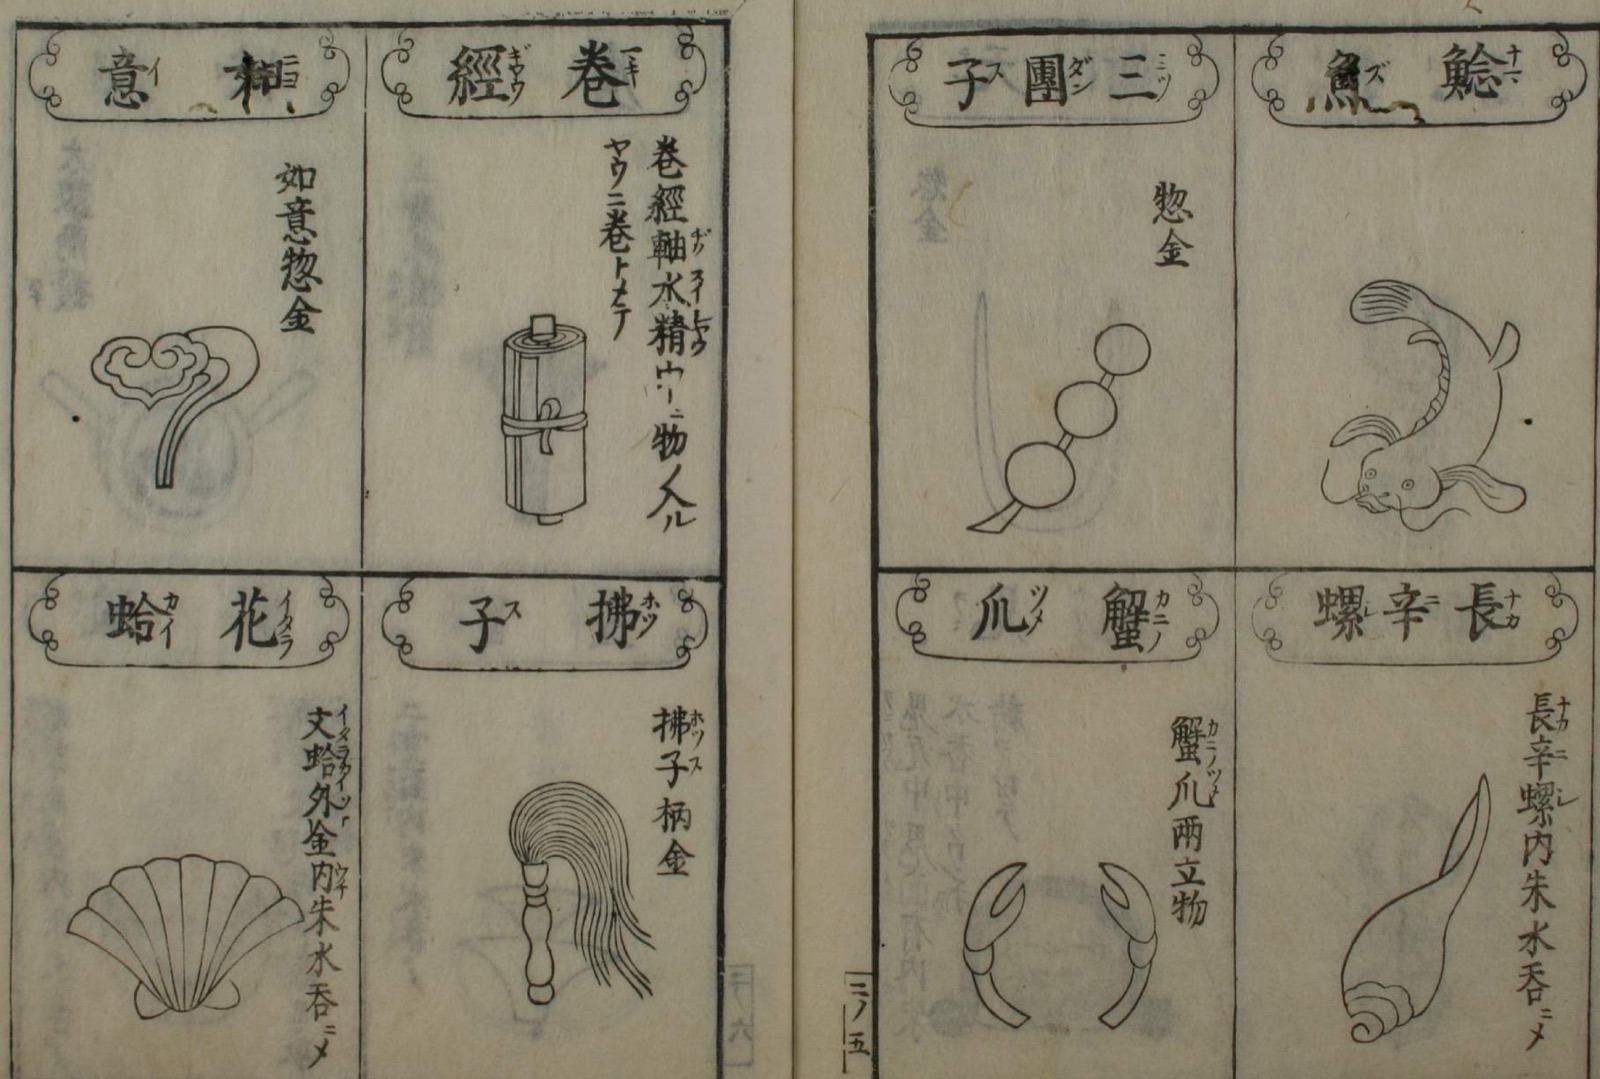 鯰魚
三團子
惣金
長辛螺
長辛螺内朱水呑ニメ
蟹爪
蟹爪兩立物
二ノ五
卷經
卷經軸水精ウリニ物ノ入ル
ヤウニ卷トメテ
如意
如意惣金
拂子
拂子柄金
花蛤
文蛤外金内朱水呑ニメ